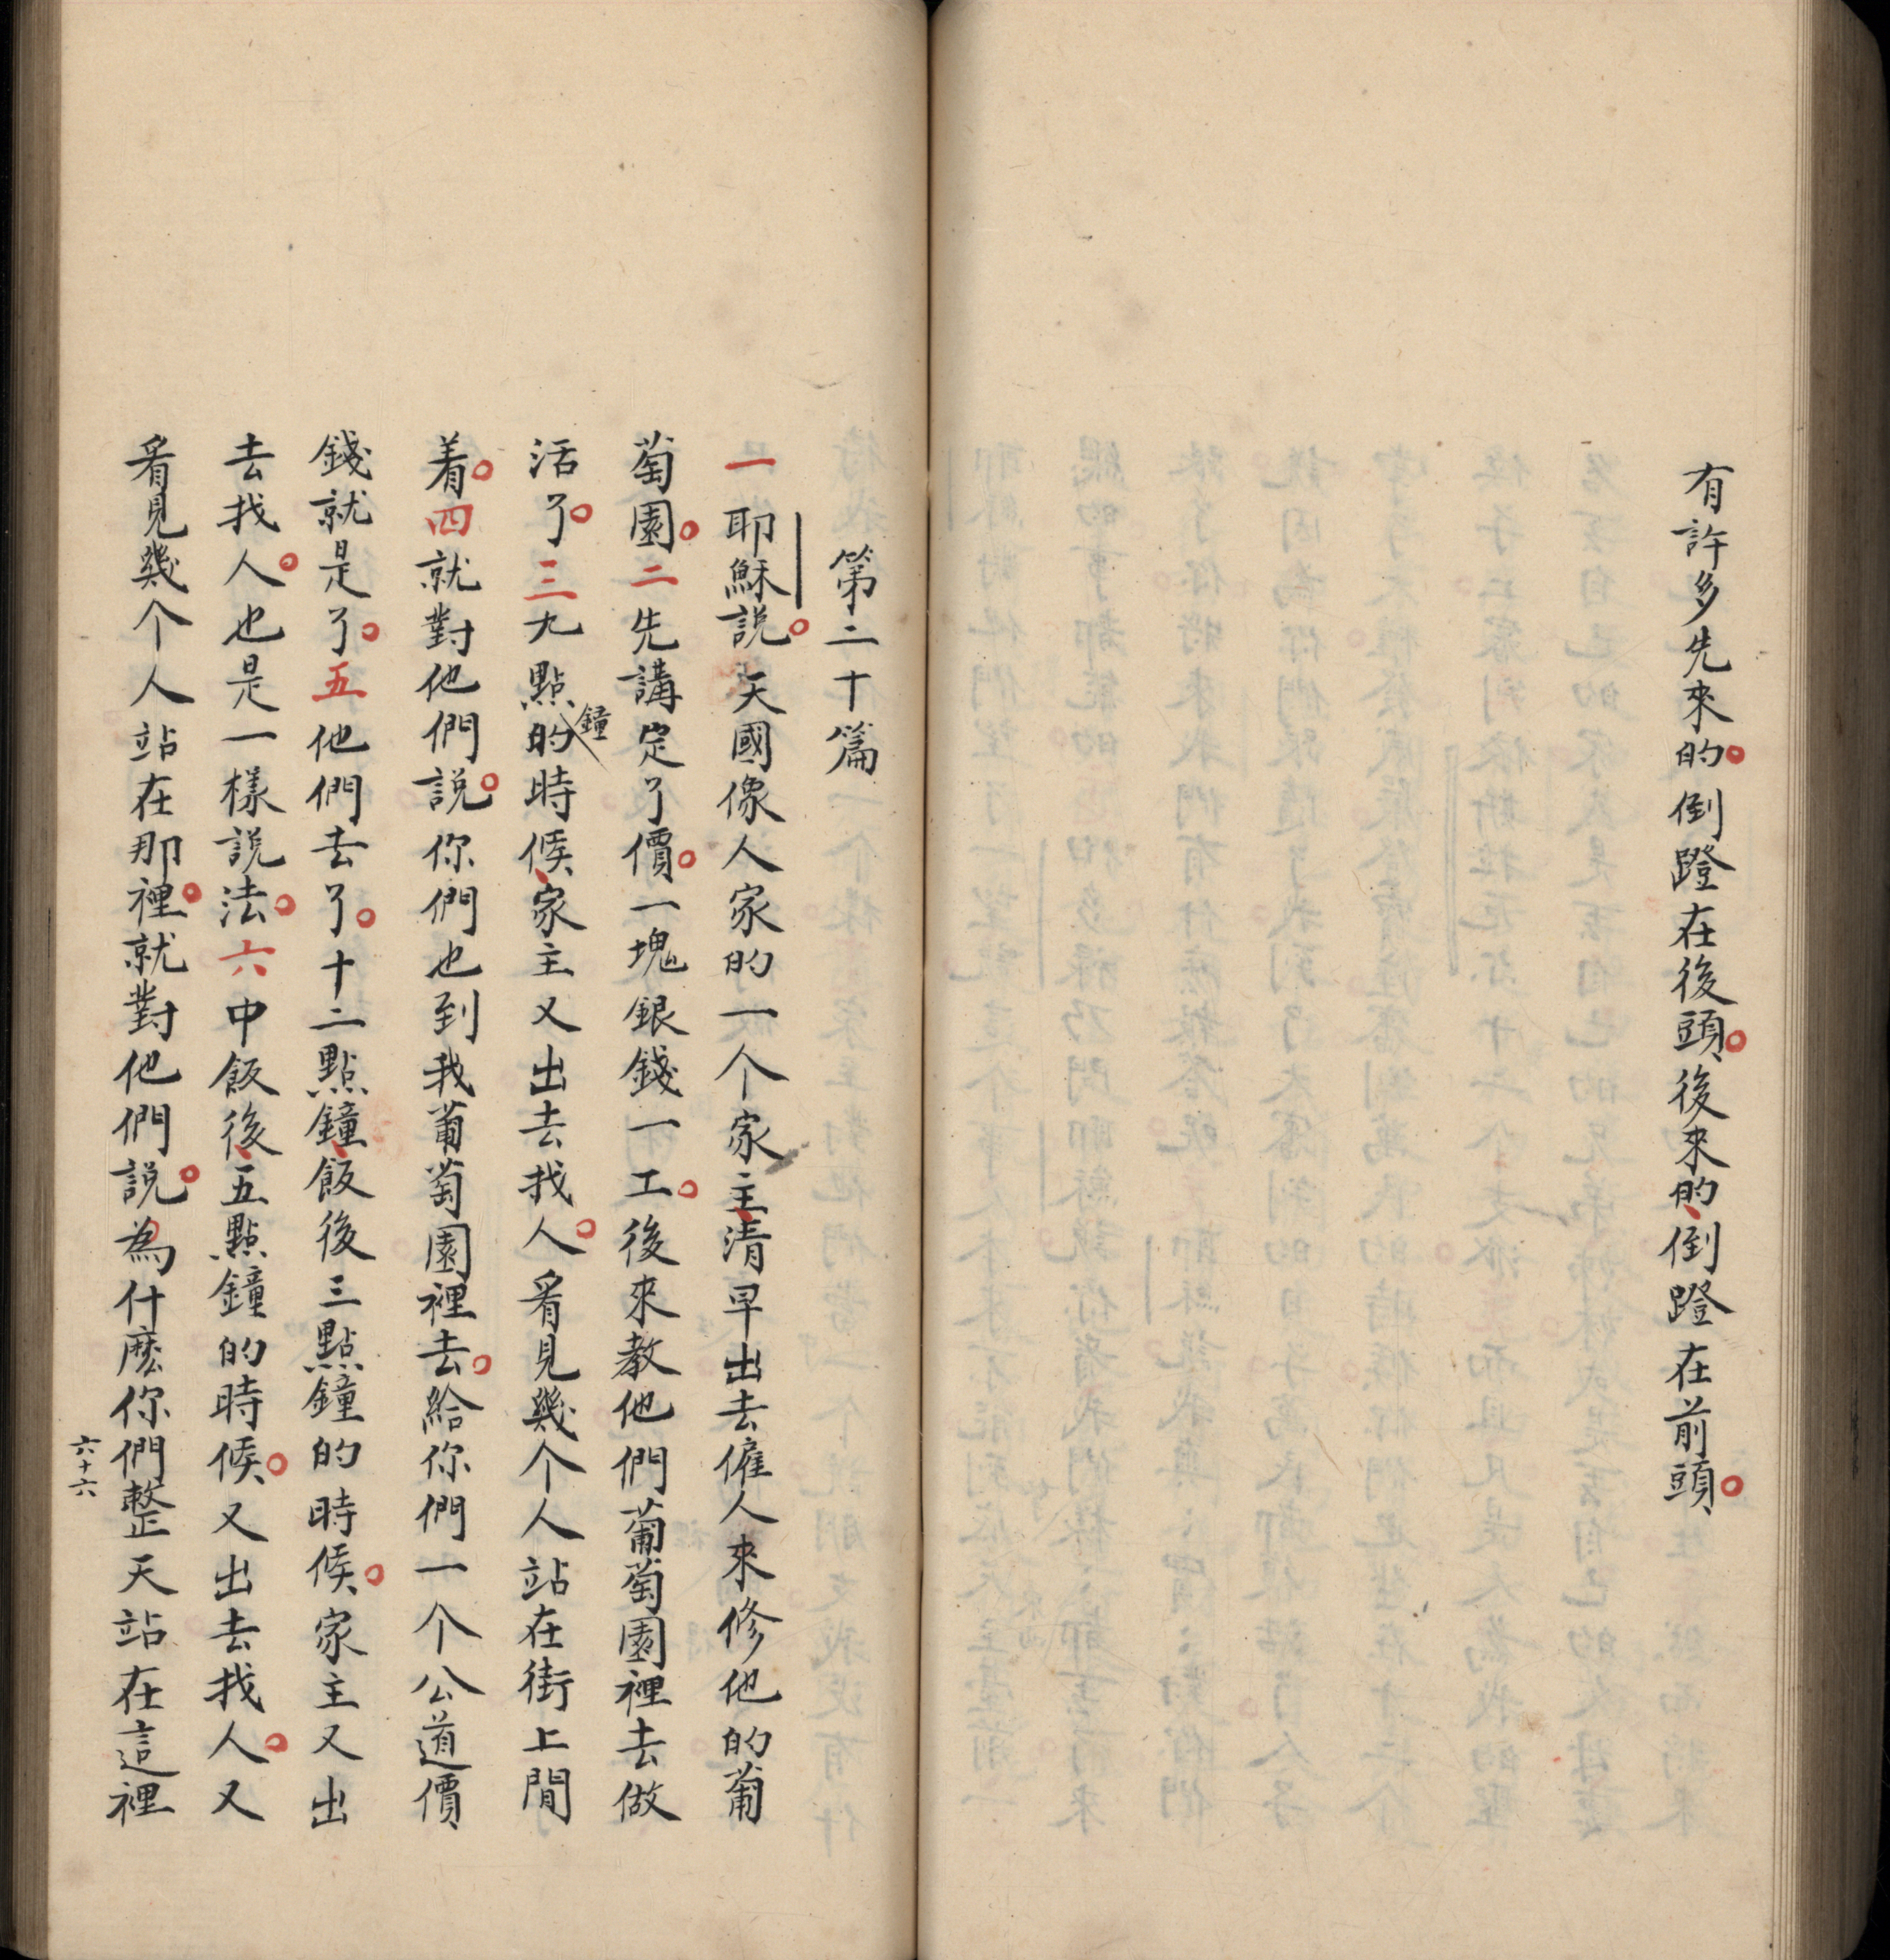 有許多先來的。倒蹬在後頭。後來的、倒蹬在前頭。
第二十篇
一耶穌説。天國像人家的一个家主、清早出去僱人來修他的葡
萄園。二先講定了價。一塊銀錢一工。後來教他們葡萄園裡去做
活了。三九點的鐘時候、家主又出去找人。看見幾个人站在街上閒
着。四就對他們説。你們也到我葡萄園裡去。給你們一个公道價
錢就是了。五他們去了。十二點鐘、飯後三點鐘的時候。家主又出
去找人。也是一樣説法。六中飯後、五點鐘的時候。又出去找人。又
看見幾个人站在那裡。就對他們説。為什麽你們整天站在這裡
六十六